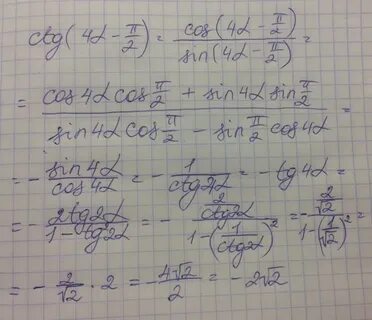 ctg(4α - π/2) = cos(4α - π/2) / sin(4α - π/2) =
= (cos4α cos π/2 + sin4α sin π/2) / (sin4α cos π/2 - sin π/2 cos4α) =
= - sin4α / cos4α = - 1 / ctg4α = - tg4α =
= - 2tg2α / (1 - tg²2α) = - (2 / ctg2α) / (1 - (1 / ctg2α)²) = - (2 / √2) / (1 - (1 / √2)²) =
= - 2 / √2 · 2 = - 4√2 / 2 = - 2√2